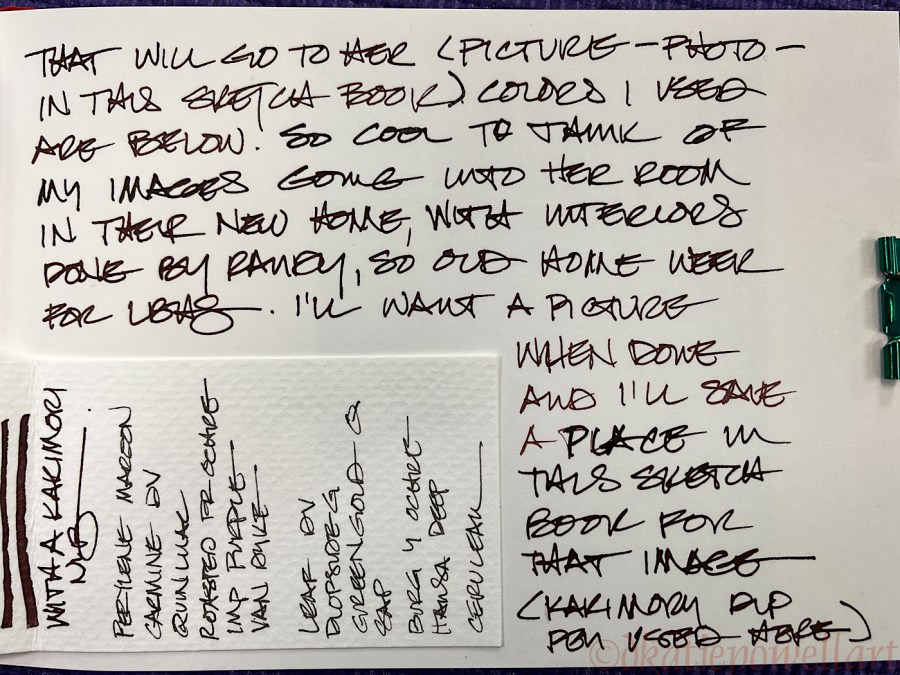 THAT WILL GO TO HER (PICTURE - PHOTO -
IN THIS SKETCH BOOK) COLORS I USED
ARE BELOW! SO COOL TO THINK OF
MY IMAGES GOING INTO HER ROOM
IN THEIR NEW HOME, WITH INTERIORS
DONE BY RAMEY, SO OLD HOME WEEK
FOR
I'LL WANT A PICTURE
WHEN DONE
AND I'LL SAVE
A PLACE IN
THIS SKETCH
BOOK FOR
THAT IMAGE
(KAKIMORY DIP
PEN USED HERE)
WITH A KAKIMORI
NIB.
PERYLENE MAROON
CARMINE DV
QUIN LILAC
ROASTED FR OCHRE
IMP PURPLE
VAN DYKE
LEAF DV
GREEN GOLD
SAP
BURG Y OCHRE
HANSA DEEP
CERULEAN
©dkatiepowellart